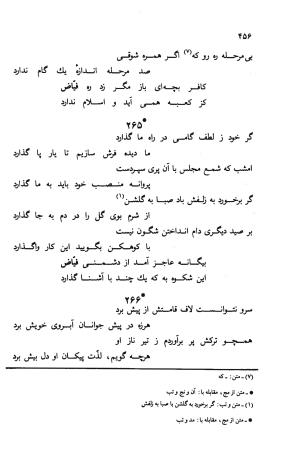 ۴۵۶
بی‌مرحله ره رو که(۷) اگر همره شوقی
صد مرحله اندازهٔ یك گام ندارد
کافر بچه‌ای باز مگر زد ره فیّاض
کز کعبه همی آید و اسلام ندارد
*۲۶۵
گر خود ز لطف گامی در راه ما گذارد
ما دیده فرش سازیم تا یار پا گذارد
امشب که شمع مجلس با آن پری سپردست
پروانه منصب خود باید به ما گذارد
گر برخورد به زلفش باد صبا به گلشن(۱)
از شرم بوی گل را در دم به جا گذارد
بر صید دیگری دام انداختن شگون نیست
با کوهکن بگویید این کار واگذارد
بیگانه عاجز آمد از دشمنی فیّاض
این شکوه به که یك چند با آشنا گذارد
*۲۶۶
سرو نتوانست لاف قامتش از پیش برد
هرزه در پیش جوانان آبروی خویش برد
همچو ترکش پر برآوردم ز تیر ناز او
هرچه گویم، لذّت پیکان او دل بیش برد
(۷) ـ متن: ـ که
* ـ متن از مج، مقابله با: آن و نج و تب
(۱) ـ متن و تب: گر برخورد به گلشن با صبا به زلفش
* ـ متن از مج، مقابله با: مد و تب